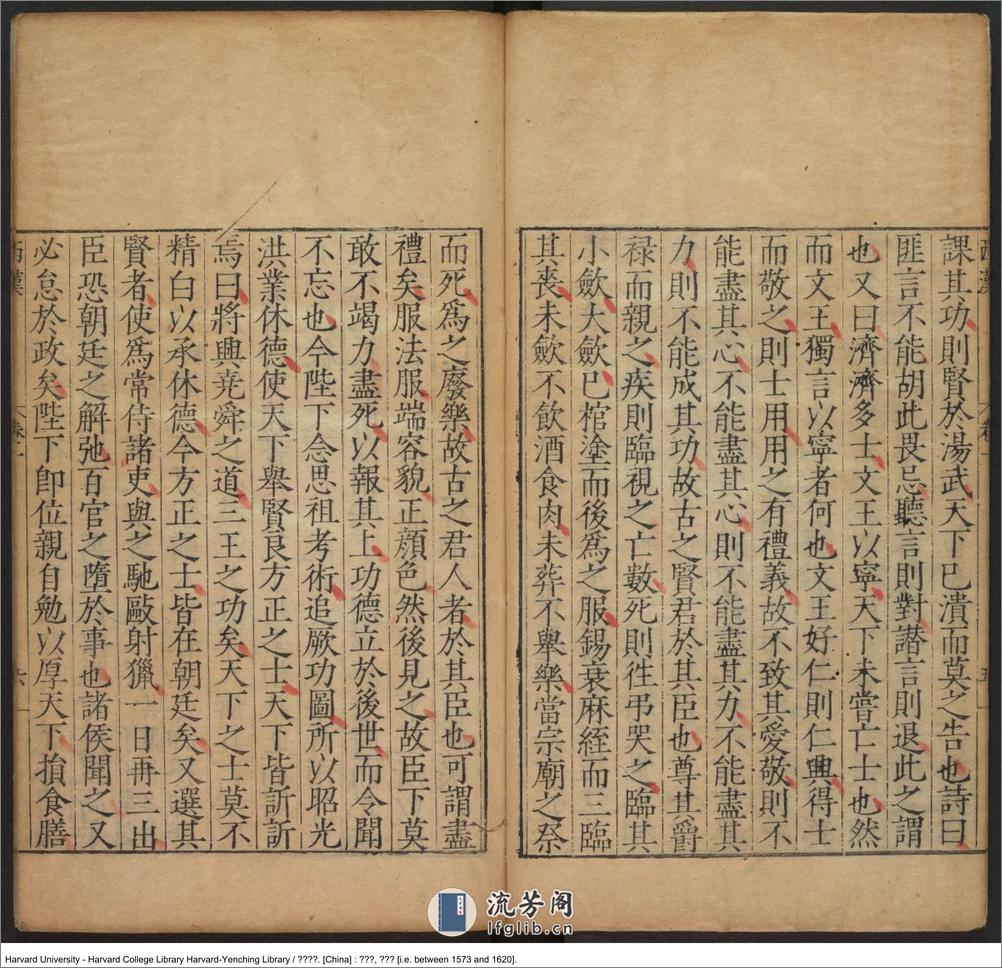 課其功則賢於湯武天下已潰而莫之告也詩曰
匪言不能胡此畏忌聽言則對譖言則退此之謂
也又曰濟濟多士文王以寧天下未嘗亡士也然
而文王獨言以寧者何也文王好仁則仁興得士
而敬之則士用用之有禮義故不致其愛敬則不
能盡其心不能盡其心則不能盡其力不能盡其
力則不能成其功故古之賢君於其臣也尊其爵
祿而親之疾則臨視之亡數死則徃弔哭之臨其
小歛大歛巳棺塗而後爲之服錫衰麻絰而三臨
其喪未歛不飲酒食肉未葬不舉樂當宗廟之祭
而死爲之廢樂故古之君人者於其臣也可謂盡
禮矣服法服端容貌正顔色然後見之故臣下莫
敢不竭力盡死以報其上功德立於後世而令聞
不忘也今陛下念思祖考術追厥功圖所以昭光
洪業休德使天下舉賢良方正之士天下皆訢訢
焉曰將興堯舜之道三王之功矣天下之士莫不
精白以承休德今方正之士皆在朝廷矣又選其
賢者使爲常侍諸吏與之馳敺射獵一日再三出
臣恐朝廷之解弛百官之墮於事也諸侯聞之又
必怠於政矣陛下卽位親自勉以厚天下損食膳
流芳阁
lfglib.cn
Harvard University - Harvard College Library Harvard-Yenching Library / ????. [China] : ???, ??? [i.e. between 1573 and 1620].